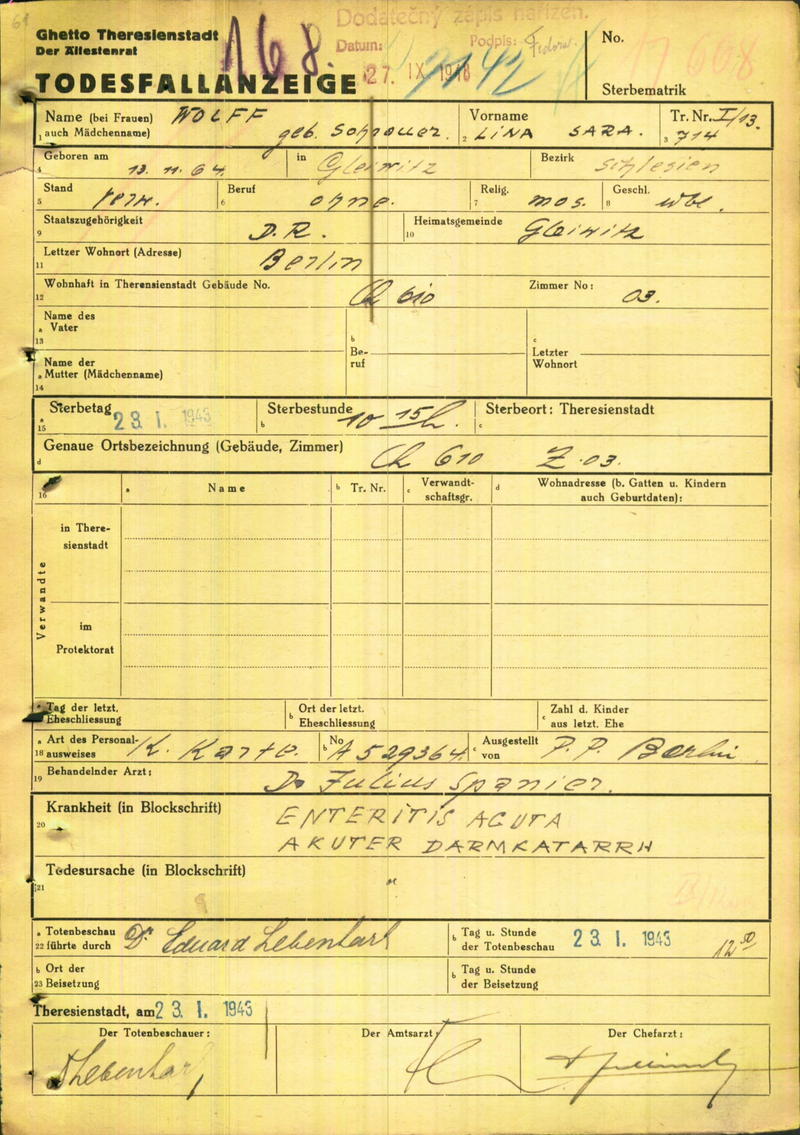 61
Ghetto Theresienstadt
Der Ältestenrat
168.
Dodatečný zápis nařízen.
Datum: Podpis:
27. IX 1948
2142
No. 17608
TODESFALLANZEIGE
Sterbematrik
Name (bei Frauen) WOLFF
1 auch Mädchenname) geb.
Vorname
2 LINA SARA.
Tr. Nr. I/13.
3 714
Geboren am
4 13. 11. 64
in Gleiwitz
Bezirk Schlesien
Stand
5 verw.
Beruf
6 ohne.
Relig.
7 mos.
Geschl.
8 wbl.
Staatszugehörigkeit
9 D. R.
Heimatsgemeinde
10 Gleiwitz
Lettzer Wohnort (Adresse)
11 Berlin
Wohnhaft in Therensienstadt Gebäude No.
12 610
Zimmer No: 03.
Name des
a Vater
13
b
Be-
ruf
c
Letzter
Wohnort
Name der
a Mutter (Mädchenname)
14
a Sterbetag
15 23. I. 1943
Sterbestunde
b 10 15 h.
Sterbeort: Theresienstadt
c
Genaue Ortsbezeichnung (Gebäude, Zimmer)
d 610 Z. 03.
16
a Name
b Tr. Nr.
c Verwandt-
schaftsgr.
d Wohnadresse (b. Gatten u. Kindern
auch Geburtdaten):
Verwandte
in There-
sienstadt
im
Protektorat
a Tag der letzt.
Eheschliessung
b Ort der letzt.
Eheschliessung
c Zahl d. Kinder
aus letzt. Ehe
a Art des Personal-
18 ausweises K. Karte.
b No A 529364
c Ausgestellt
von P. P. Berlin
Behandelnder Arzt:
19 Dr Julius Spanier.
Krankheit (in Blockschrift)
20
ENTERITIS ACUTA
AKUTER DARMKATARRH
Todesursache (in Blockschrift)
21
a Totenbeschau
22 führte durch Dr Eduard Lebenhart
b Tag u. Stunde
der Totenbeschau 23. I. 1943 12 50
b Ort der
23 Beisetzung
b Tag u. Stunde
der Beisetzung
Theresienstadt, am 23. I. 1943
Der Totenbeschauer:
Der Amtsarzt:
Der Chefarzt:
Lebenhart